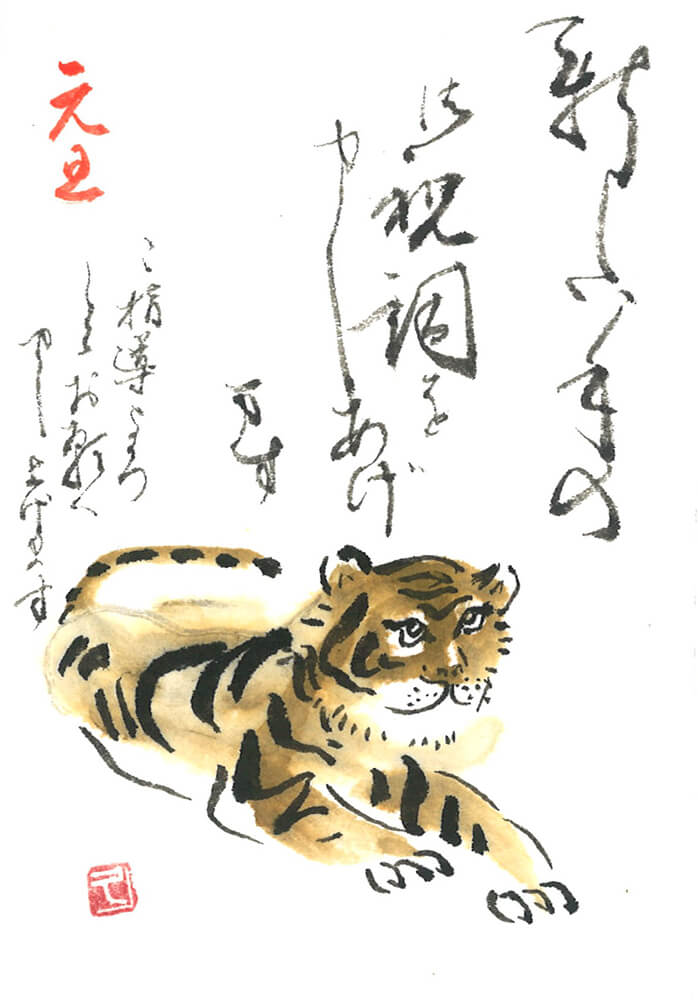 新しい年の
御祝詞を
申しあげ
ます
ご指導よろ
しくお願い
申し上げます
元旦